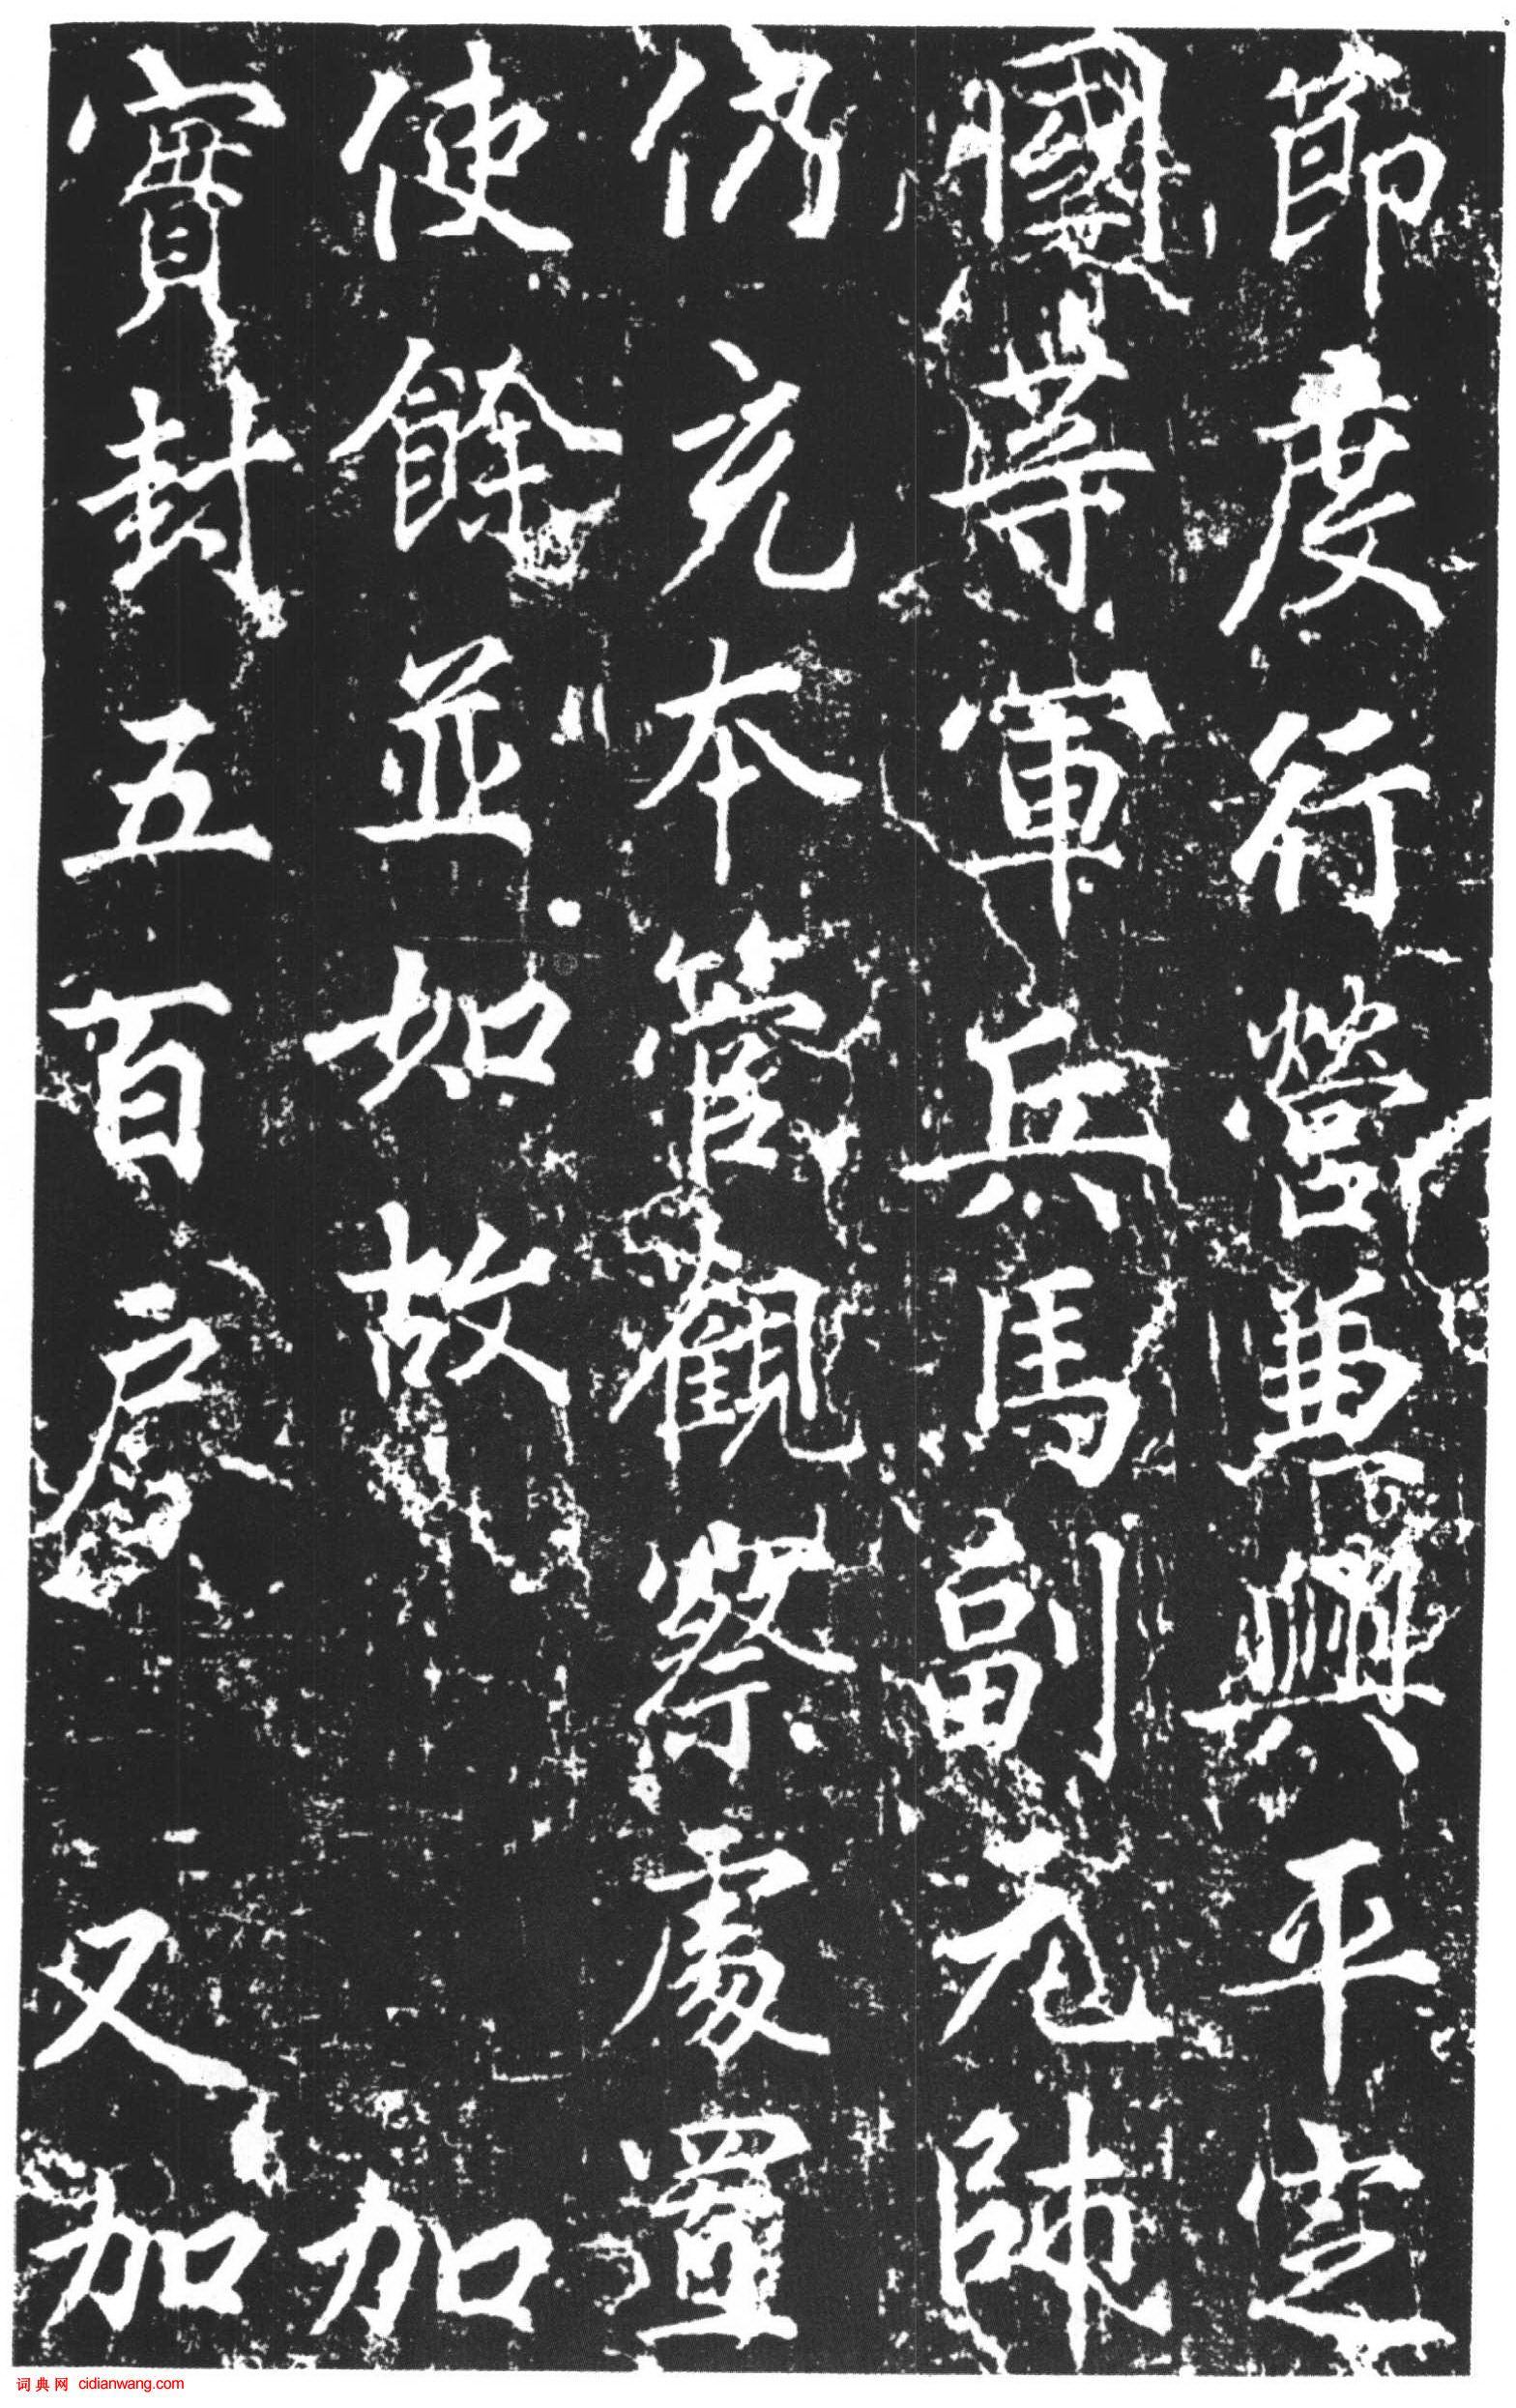 節度行營兼興平定
國等軍兵馬副元帥
仍充本管觀察處置
使餘並如故　加
實封五百戶　又加
词典网 cidianwang.com